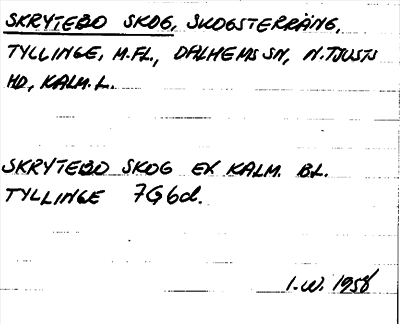 SKRYTEBO SKOG, SKOGSTERRÄNG,
TYLLINGE, M.FL., DALHEMS SN, N.TJUSTS
HD, KALM.L.
SKRYTEBO SKOG EK KALM. BL.
TYLLINGE 7G6d.
I.W. 1958